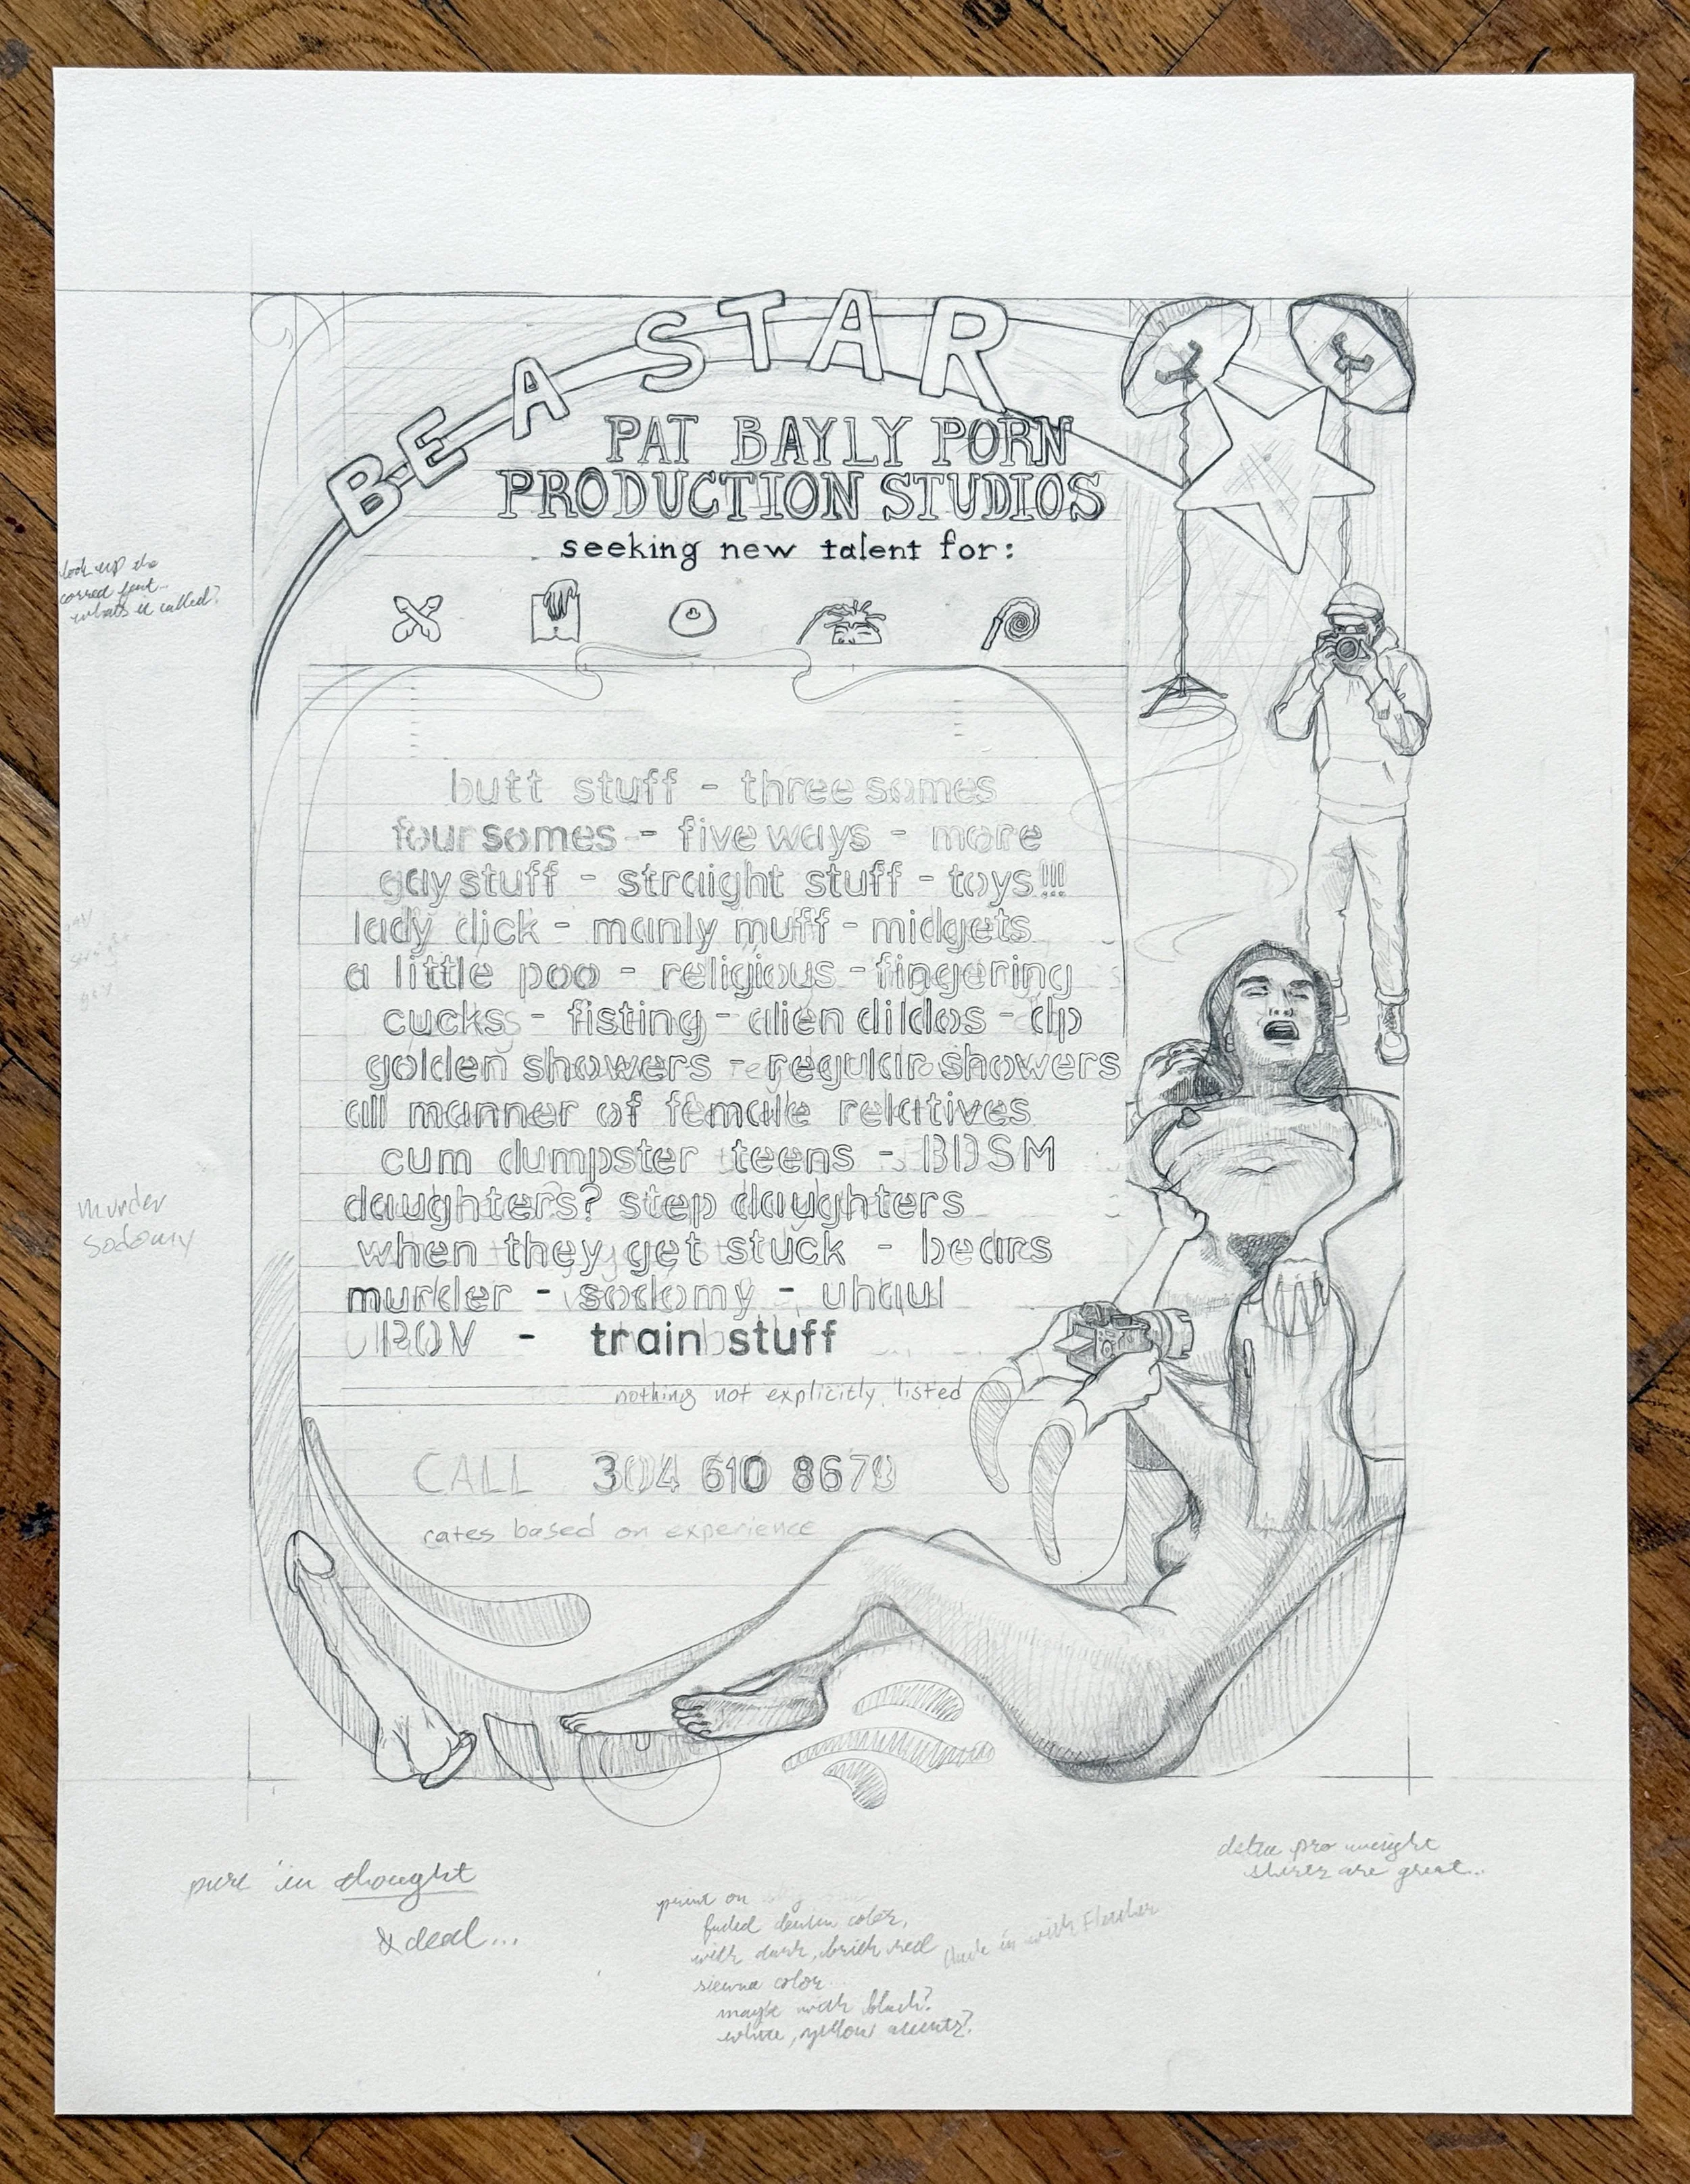 BE A STAR
PAT BAYLY PORN
PRODUCTION STUDIOS
seeking new talent for:
look up the
whats it called?
butt stuff - threesomes
foursomes - fiveways - more
gay stuff - straight stuff - toys!!!
lady dick - manly muff - midgets
a little poo - religious - fingering
cucks - fisting - alien dildos - dp
golden showers - regular showers
all manner of female relatives
cum dumpster teens - BDSM
daughters? step daughters
when they get stuck - bears
murder - sodomy - uhaul
POV - train stuff
nothing not explicitly listed
murder
sodomy
CALL 304 610 8679
rates based on experience
pure in thought
& deed...
print on
faded denim color,
with dark, brick red
sienna color
maybe with black?
white, yellow accents?
pro weight
shirts are great...